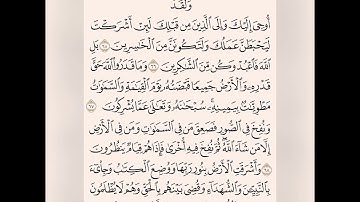 وَلَقَدْ
أُوحِىَ إِلَيْكَ وَإِلَى ٱلَّذِينَ مِن قَبْلِكَ لَئِنْ أَشْرَكْتَ
لَيَحْبَطَنَّ عَمَلُكَ وَلَتَكُونَنَّ مِنَ ٱلْخَٰسِرِينَ ٦٥ بَلِ
ٱللَّهَ فَٱعْبُدْ وَكُن مِّنَ ٱلشَّٰكِرِينَ ٦٦ وَمَا قَدَرُوا۟ ٱللَّهَ حَقَّ
قَدْرِهِۦ وَٱلْأَرْضُ جَمِيعًا قَبْضَتُهُۥ يَوْمَ ٱلْقِيَٰمَةِ وَٱلسَّمَٰوَٰتُ
مَطْوِيَّٰتٌۢ بِيَمِينِهِۦ ۚ سُبْحَٰنَهُۥ وَتَعَٰلَىٰ عَمَّا يُشْرِكُونَ ٦٧
وَنُفِخَ فِى ٱلصُّورِ فَصَعِقَ مَن فِى ٱلسَّمَٰوَٰتِ وَمَن فِى ٱلْأَرْضِ
إِلَّا مَن شَآءَ ٱللَّهُ ۖ ثُمَّ نُفِخَ فِيهِ أُخْرَىٰ فَإِذَا هُمْ قِيَامٌ يَنظُرُونَ
٦٨ وَأَشْرَقَتِ ٱلْأَرْضُ بِنُورِ رَبِّهَا وَوُضِعَ ٱلْكِتَٰبُ وَجِا۟ىٓءَ
بِٱلنَّبِيِّۦنَ وَٱلشُّهَدَآءِ وَقُضِىَ بَيْنَهُم بِٱلْحَقِّ وَهُمْ لَا يُظْلَمُونَ